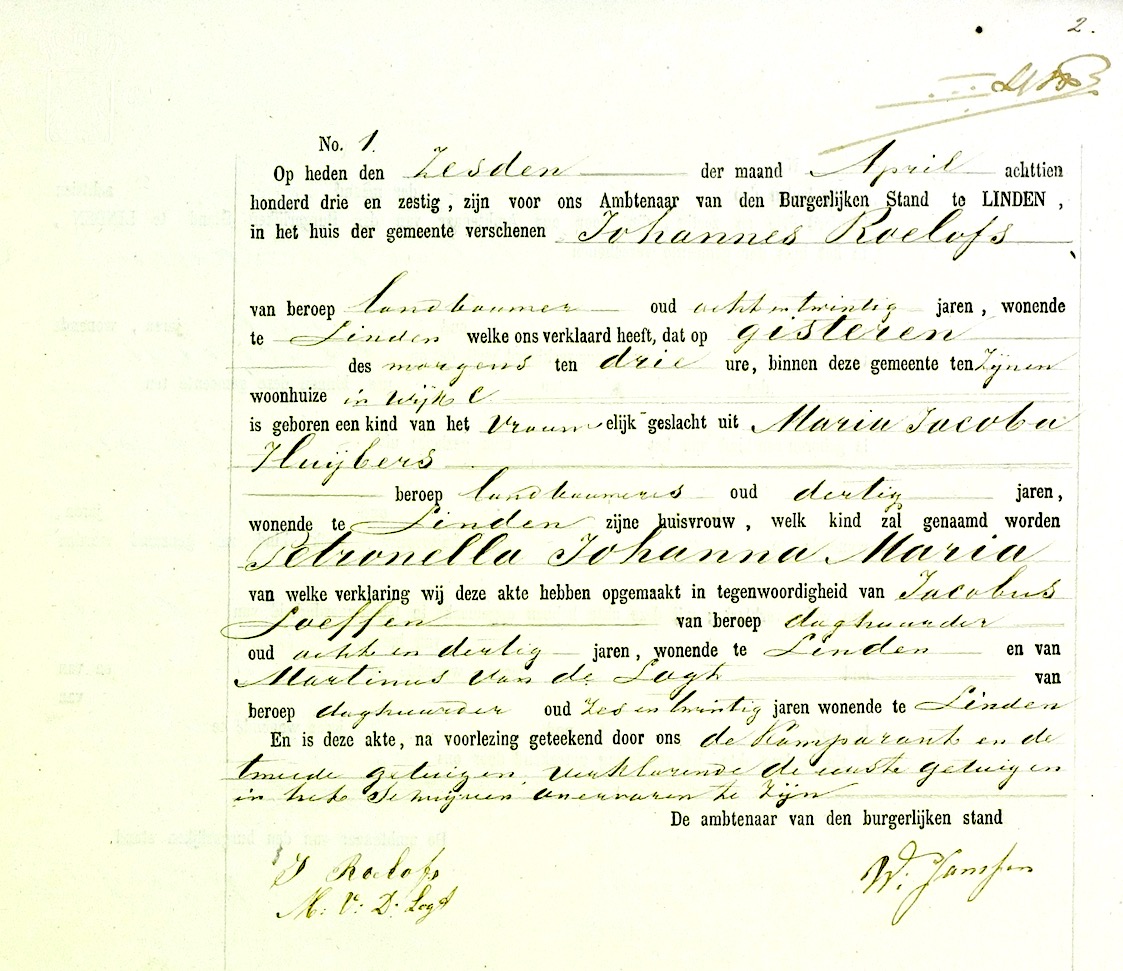 2.
No. 1.
Op heden den Zesden der maand April achttien
honderd drie en zestig, zijn voor ons Ambtenaar van den Burgerlijken Stand te LINDEN,
in het huis der gemeente verschenen Johannes Roelofs
van beroep landbouwer oud acht en twintig jaren, wonende
te Linden welke ons verklaard heeft, dat op gisteren
des morgens ten drie ure, binnen deze gemeente ten Zijnen
woonhuize in Wijk C
is geboren een kind van het vrouwelijk geslacht uit Maria Jacoba
Huijbers
beroep landbouweres oud dertig jaren,
wonende te Linden zijne huisvrouw, welk kind zal genaamd worden
Petronella Johanna Maria
van welke verklaring wij deze akte hebben opgemaakt in tegenwoordigheid van Jacobus
Loeffen van beroep daghuurder
oud acht en dertig jaren, wonende te Linden en van
Martinus van de Logt van
beroep daghuurder oud Zes en twintig jaren wonende te Linden
En is deze akte, na voorlezing geteekend door ons de Komparant en de
tweede getuigen, verklarende de eerste getuigen
in het Schrijven onervaren te Zijn
De ambtenaar van den burgerlijken stand
J Roelofs
W. Janssen
M: V: D: Logt